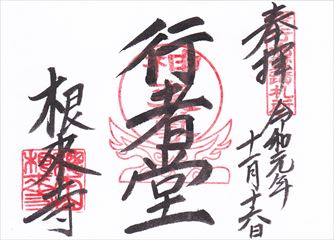 奉拝
令和元年
十一月十六日
行者堂
根来寺